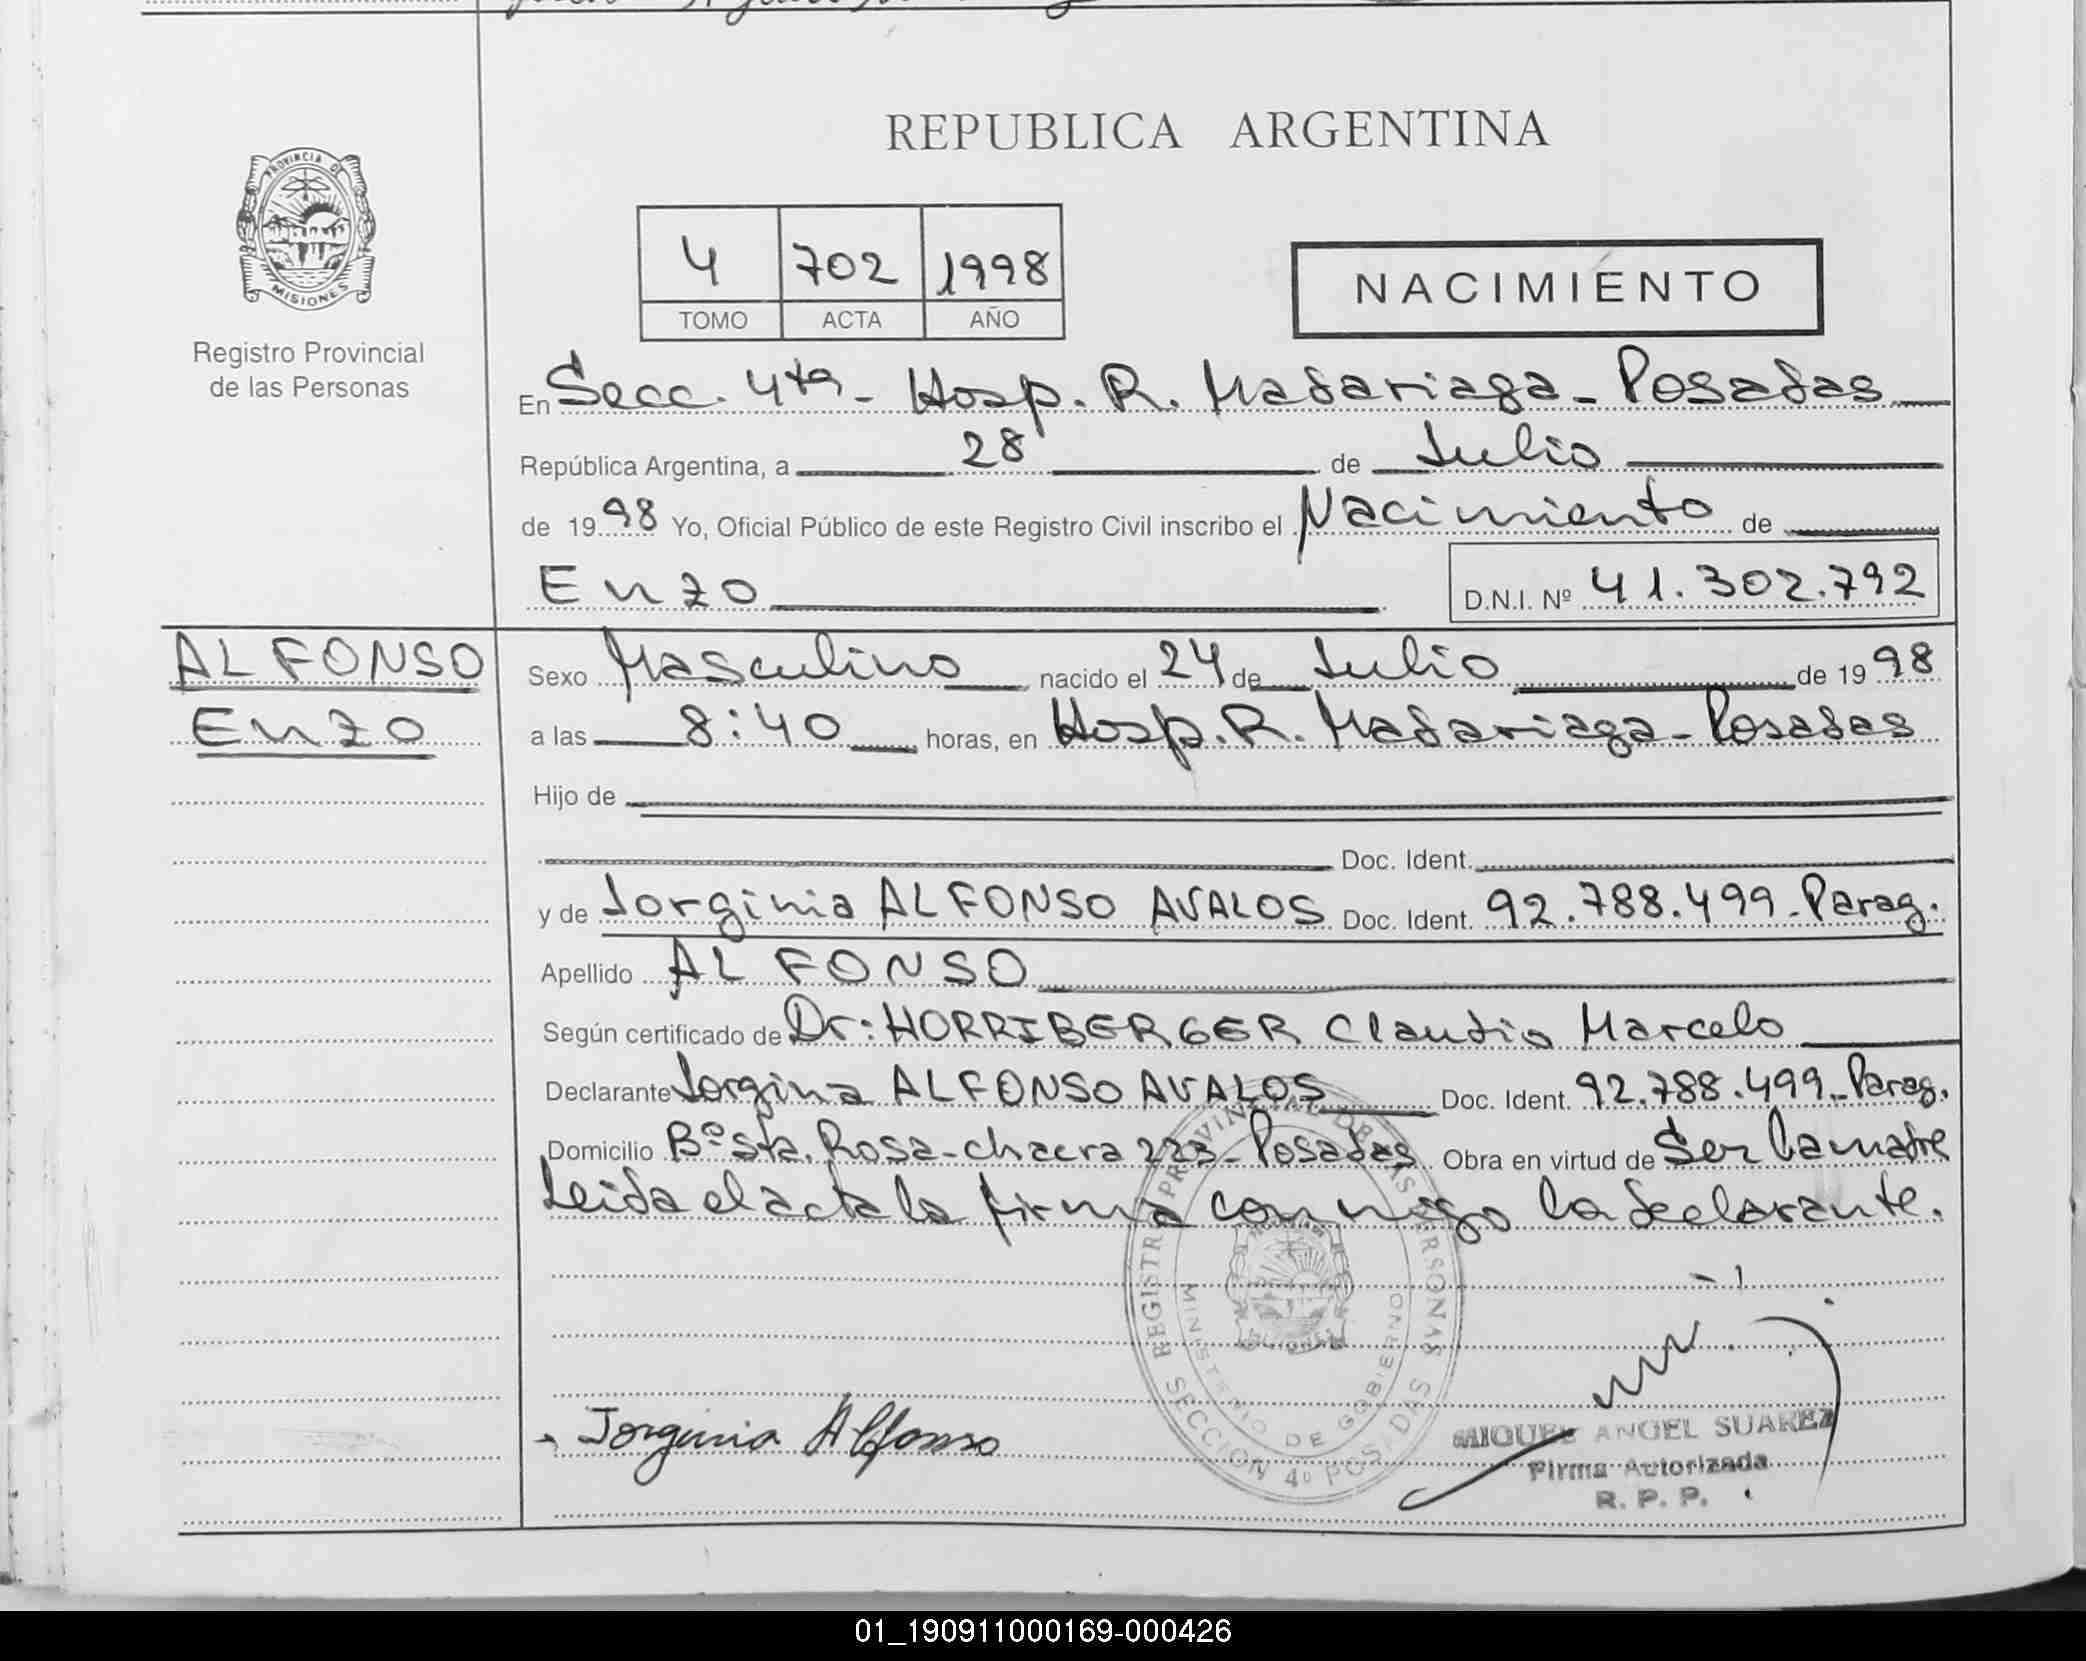 REPUBLICA ARGENTINA
PROVINCIA DE
MISIONES
Registro Provincial
de las Personas
4 702 1998
TOMO ACTA AÑO
NACIMIENTO
En Secc. 4ta - Hosp. R. Madariaga - Posadas
República Argentina, a 28 de Julio
de 1998 Yo, Oficial Público de este Registro Civil inscribo el Nacimiento de
Enzo D.N.I. Nº 41.302.792
ALFONSO
Enzo
Sexo Masculino nacido el 24 de Julio de 1998
a las 8:40 horas, en Hosp. R. Madariaga - Posadas
Hijo de
Doc. Ident.
y de Jorginia ALFONSO AVALOS Doc. Ident. 92.788.499 - Parag.
Apellido ALFONSO
Según certificado de Dr: HORRIBERGER Claudio Marcelo
Declarante Jorgina ALFONSO AVALOS Doc. Ident. 92.788.499 - Parag.
Domicilio Bº Sta. Rosa - chacra 223 - Posadas Obra en virtud de Ser la madre
Leida el acta la firma conmigo la declarante.
REGISTRO PROVINCIAL DE LAS PERSONAS
MINISTERIO DE GOBIERNO
SECCION 4º POSADAS
Jorginia Alfonso
MIGUEL ANGEL SUAREZ
Firma Autorizada
R. P. P.
01_190911000169-000426